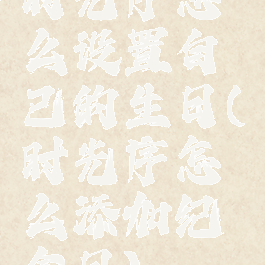 时光序怎
么设置自
己的生日(
时光序怎
么添加纪
念日)